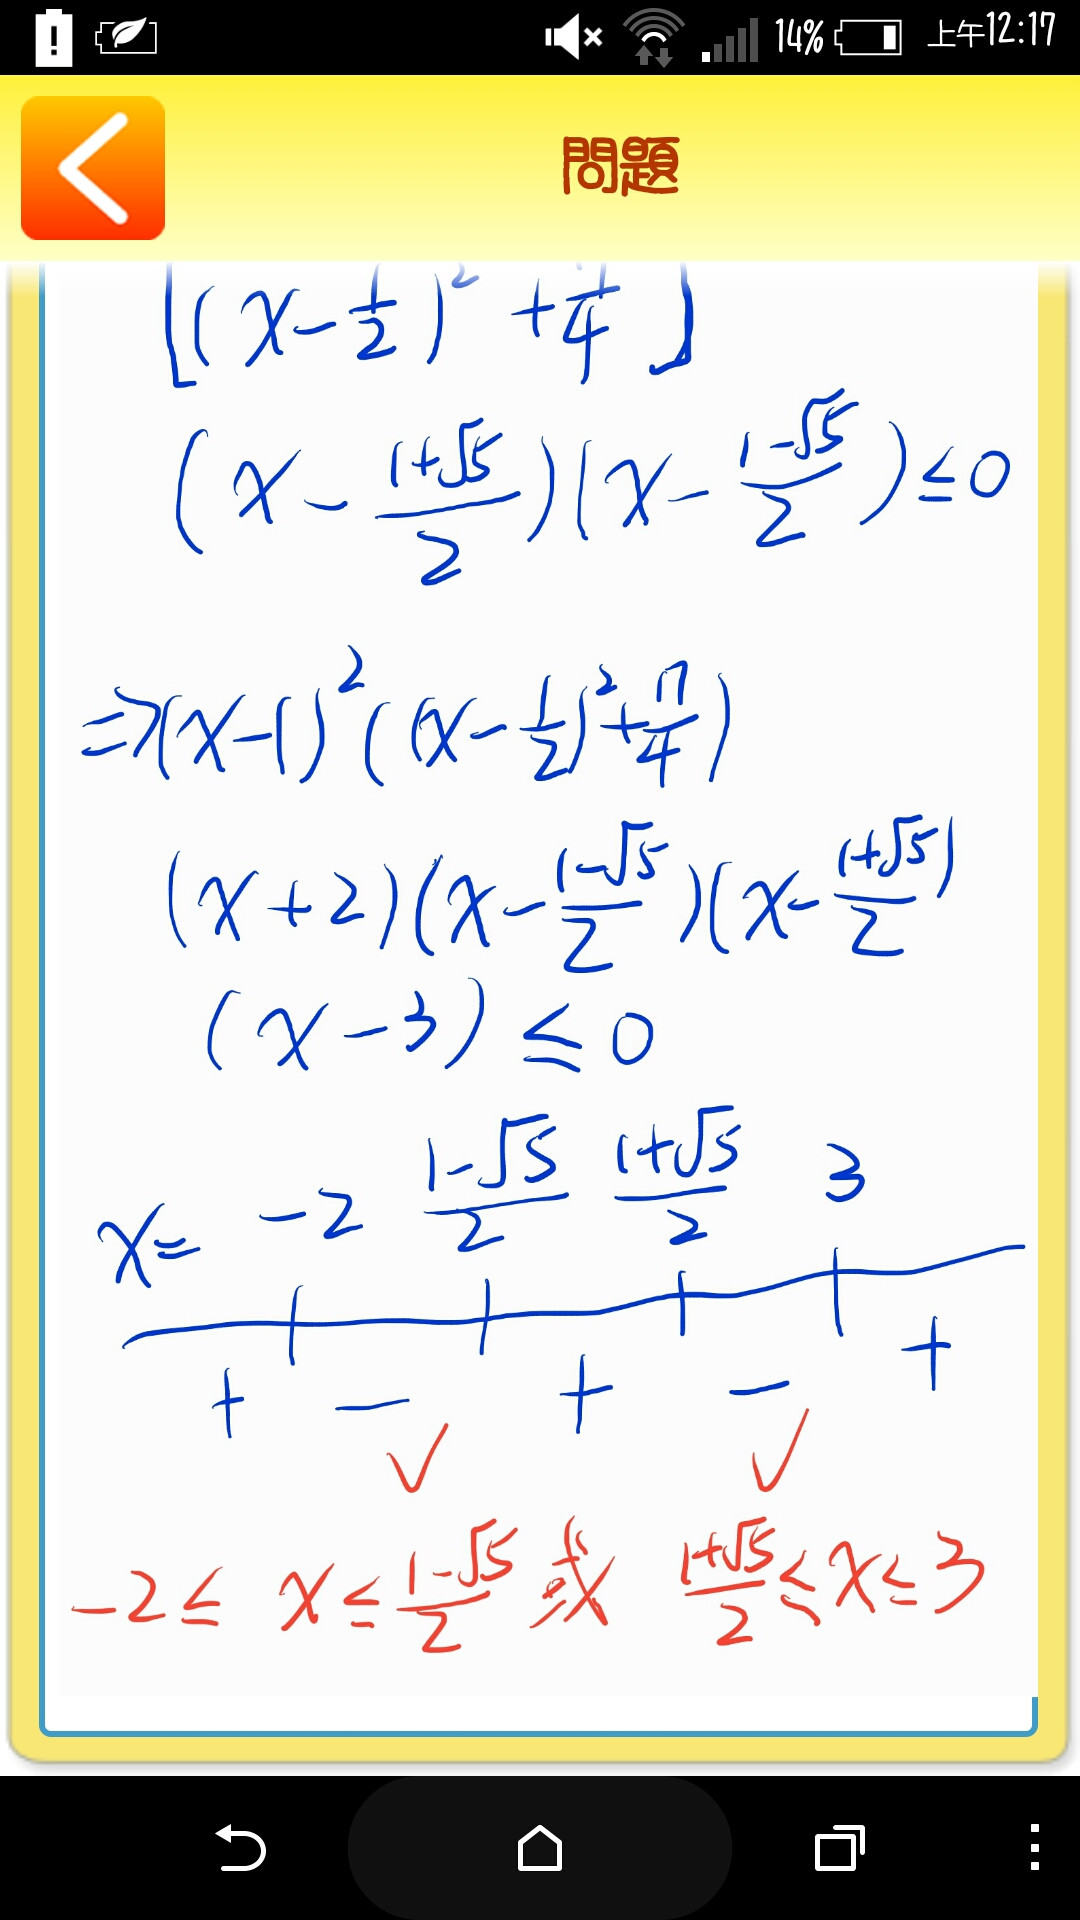 14% 上午12:17
問題
[(x-1/2)² + /4]
(x - (1+√5)/2)(x - (1-√5)/2) ≤ 0
⇒ (x-1)² ((x-1/2)² + 17/4)
(x+2)(x - (1-√5)/2)(x - (1+√5)/2)
(x-3) ≤ 0
x= -2 (1-√5)/2 (1+√5)/2 3
+ - + - +
✓ ✓
-2 ≤ x ≤ (1-√5)/2 或 (1+√5)/2 ≤ x ≤ 3